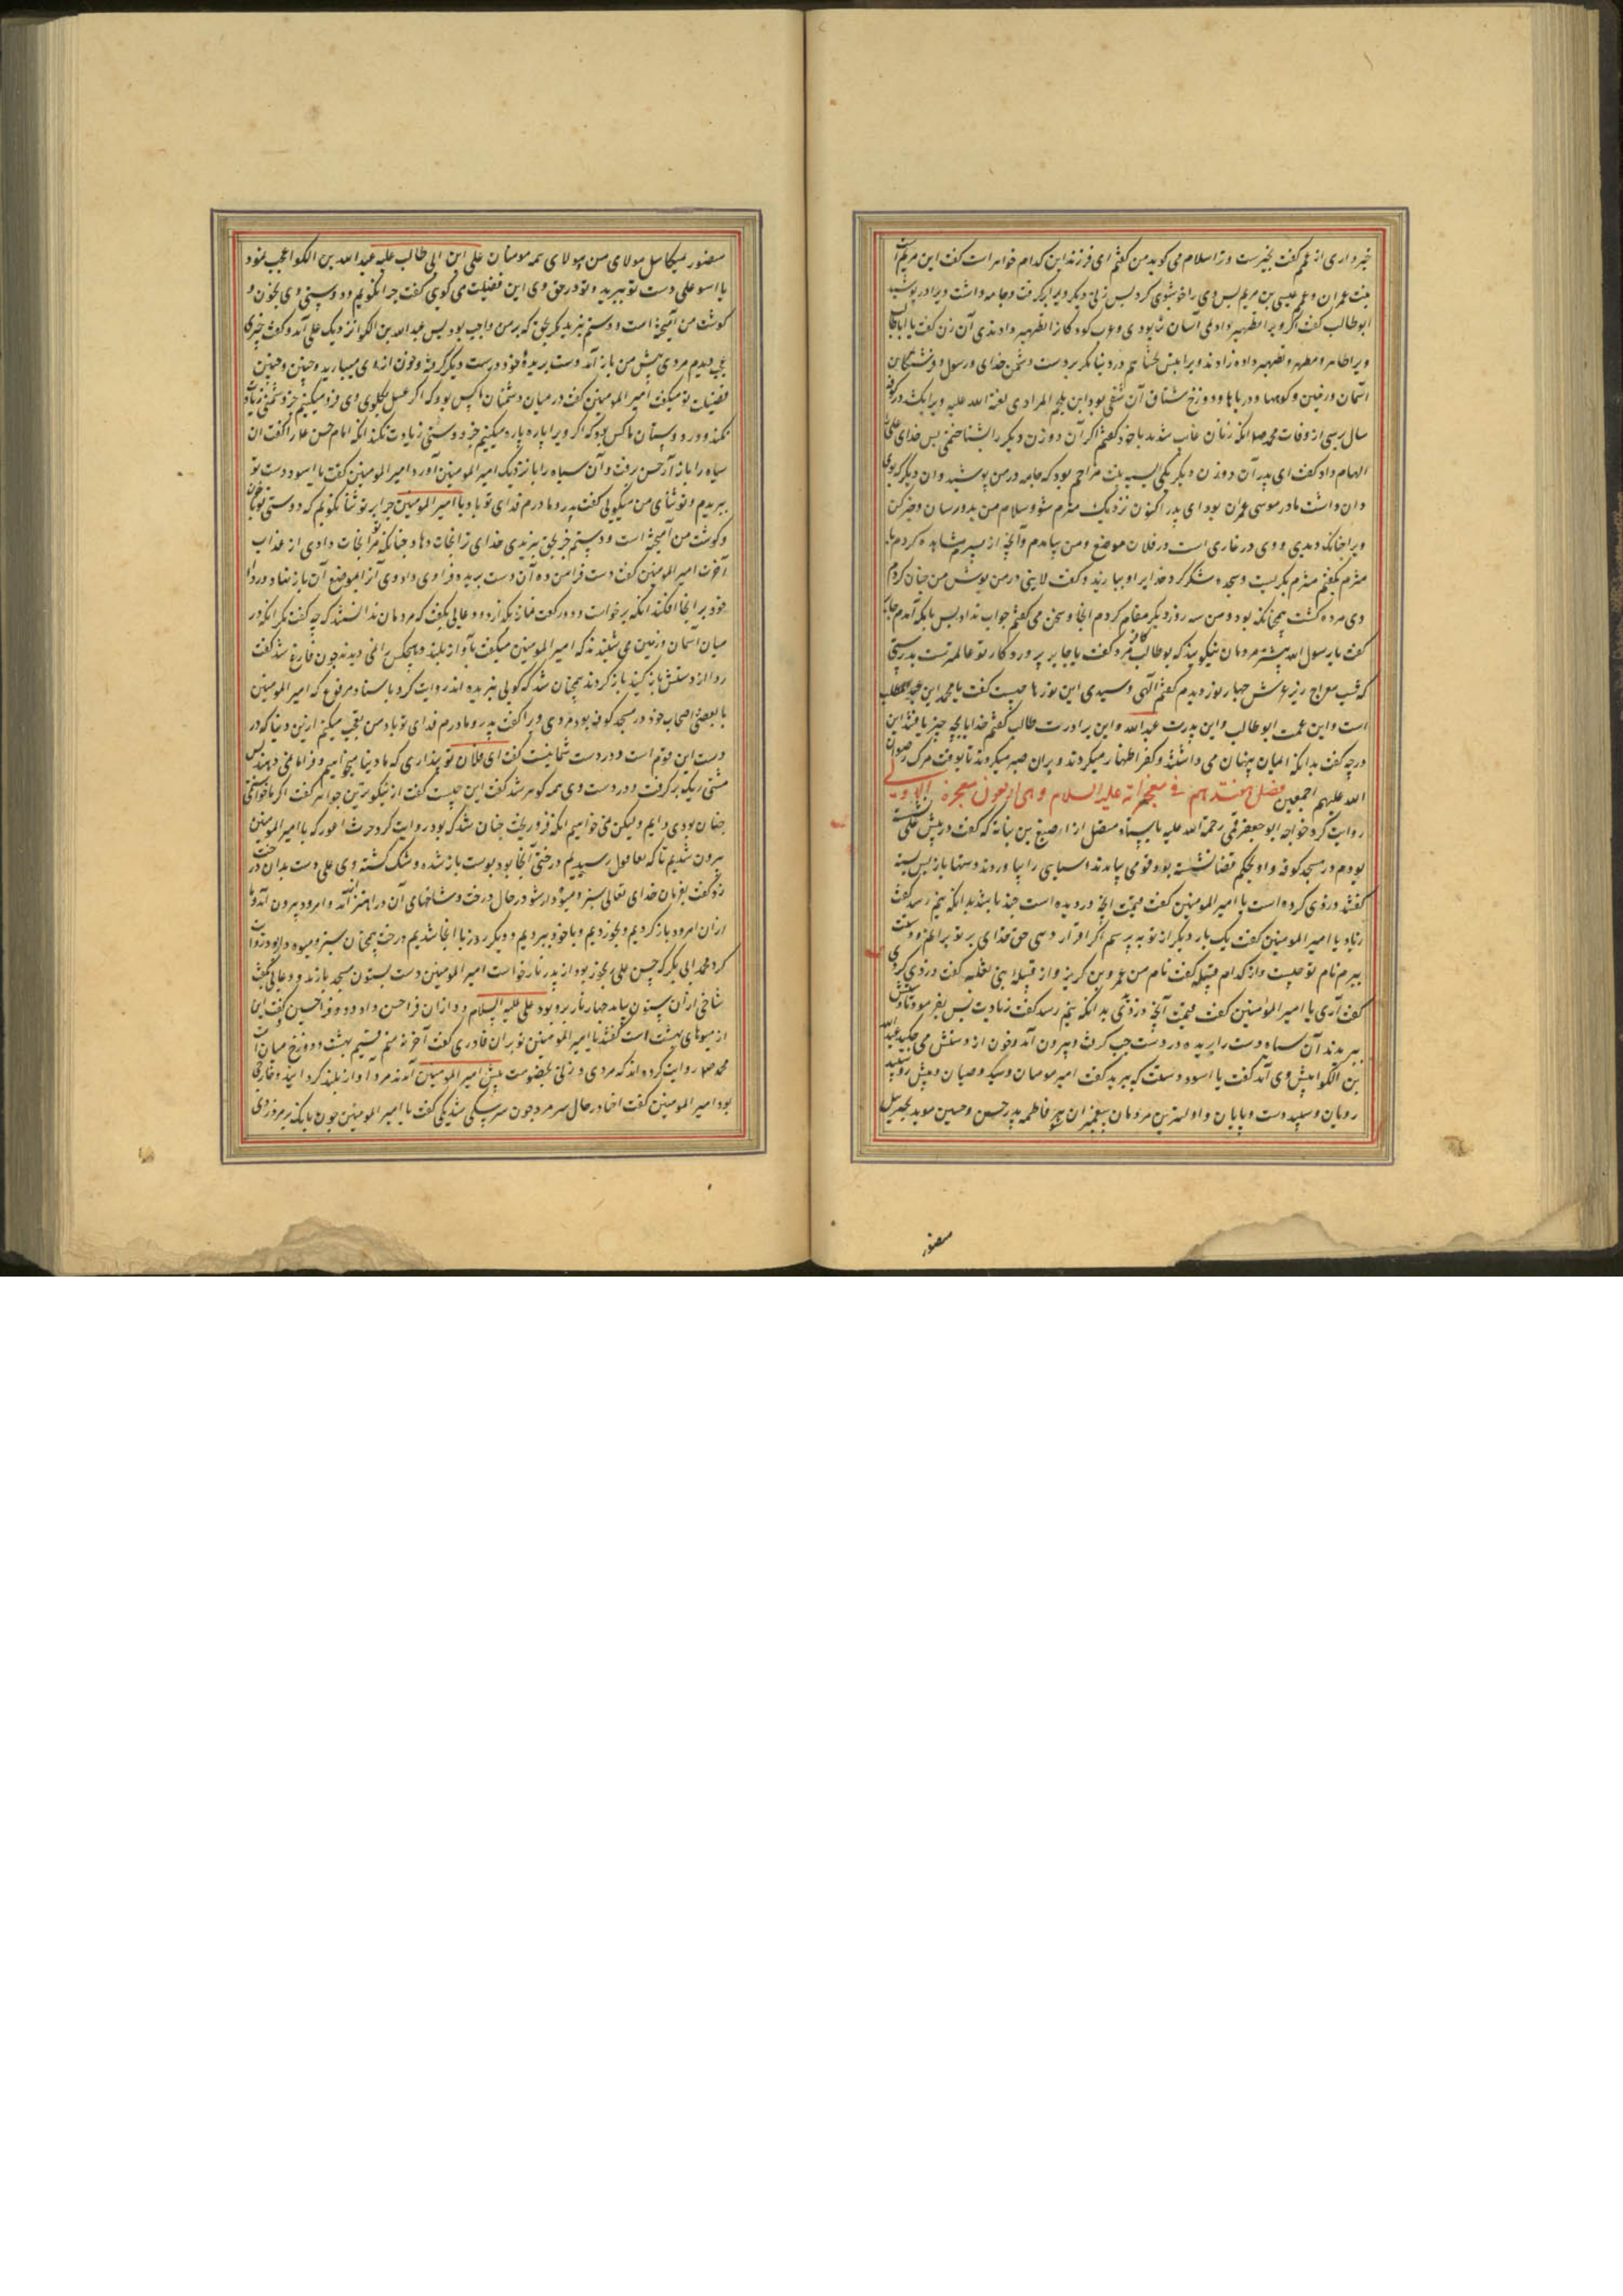 خبر داری از عمم گفت بخیرست و ترا سلام می کوید من کفتم ای فرزند این کدام خواهر است کفت این مریم
بنت عمران و عم عیسی بن مریم بس وی را خوشبوی کرد بس زنی دیکر ویرا برکرفت و جامه داشت ویرا در پوشید
ابو طالب کفت اکر ویرا تطهیر دادمی آسان تر بودی و عرب کودکان را تطهیر دادندی آن زن کفت یا ابا طالب
ویرا طاهر و مطهر و تطهیر داده زادند ویرا آهن نچشانیم در دنیا مکر بر دست دشمن خدای و رسول و فرشتکان
آسمان و زمین و کوهها و دریاها و دوزخ مشتاق آن شقی بود ابن ملجم المرادی لعنة الله علیه ویرا بکشد در کوفه
سال سی از وفات محمد صلا آنکه زنان غایب شدند با خود کفتم اکر آن دو زن دیکر را بشناختمی بس خدای علی را
الهام داد کفت ای پدر آن دو زن دیکر یکی آسیه بنت مزاحم بود که جامه در من پوشید و آن دیکر که بوی
دان داشت مادر موسی عمران بود ای پدر اکنون نزدیک مثرم شو و سلام من بدو رسان و خبر کن
ویرا چنانکه دیدی و وی در غاری است در فلان موضع و من بیامدم و آنچه از پسرم مشاهده کردم با
مثرم بکفتم مثرم بکریست و سجده شکر کرد خدایرا و بیارمید و کفت لابنی در من پوش من چنان کردم
وی مرده کشت همچنانکه بود و من سه روز دیکر مقام کردم آنجا و سخن می کفتم جواب نداد بس بمکه آمدم جابر
کفت یا رسول الله بیشتر مردمان میکویند که بو طالب کافر مرد کفت یا جابر پروردکار تو عالمترست بدرستی
که شب معراج زیر عرش چهار نور دیدم کفتم الهی و سیدی این نورها چیست کفت یا محمد این عبد المطلب
است و این عمت ابو طالب و این پدرت عبد الله و این برادرت طالب کفتم خدایا بچه چیز یافتند این
درجه کفت بدانکه ایمان پنهان می داشتند و کفر اظهار میکردند و بران صبر میکردند تا بوقت مرک رضوان
الله علیهم اجمعین فصل هفتدهم فی معجزاته علیه السلام و هی اربعون معجزه الاولی
روایت کرد خواجه ابو جعفر قمی رحمة الله علیه باسناد متصل از اصبغ بن نباته که کفت در پیش علی نشسته
بودم در مسجد کوفه و او بحکم قضا نشسته بود قومی بیامدند و سیاهی را بیاوردند دستها باز بس بسته
کفتند دزدی کرده است یا امیر المومنین کفت قیمت آنچه دزدیده است چند باشد بدانکه بنیم رسد کفت
زیاد یا امیر المومنین کفت یک بار دیکر از تو بپرسم اکر اقرار دهی حق خدای بر تو برانم و دستت
ببرم نام تو چیست و از کدام قبیله کفت نام من عمرو بن کریز و از قبیله ابن ثعلبه کفت دزدی کردی
کفت آری یا امیر المومنین کفت قیمت آنچه دزدی بدانکه بنیم رسد کفت زیادت بس بفرمود تا دستش
ببریدند آن سیاه دست را بریده در دست چپ کرفت و بیرون آمد و خون از دستش می چکید عبد الله
بن الکوا پیش وی آمد کفت یا اسود دستت که ببرید کفت امیر مومنان و سید وصیان و پیش رو سپید
رویان و سپید دست و پایان و اولیترین مردمان به پیغمبران بهر فاطمه پدر حسن و حسین موید بجبرئیل
منصور
منصور میکائیل مولای من و مولای همه مومنان علی ابن ابی طالب علیه عبد الله بن الکوا عجب نمود
یا اسود علی دست تو ببرید و تو در حق وی این فضیلت می کوی کفت چرا نکویم و دوستی وی بخون و
کوشت من آمیخته است و دستم نبرید مکر بحق که بر من واجب بود بس عبد الله بن الکوا نزدیک علی آمد و کفت چیزی
عجب دیدم مردی پیش من باز آمد دست بریده خود در دست دیکر کرفته و خون از وی میبارید و چنین و چنین
فضیلت تو میکفت امیر المومنین کفت در میان دشمنان ما کس بود که اکر عسل بکلوی وی فرو میکنیم جز دشمنی زیادت
نکند و در دوستان ما کس بود که اکر ویرا پاره پاره میکنیم جز دوستی زیادت نکند آنکه امام حسن را کفت آن
سیاه را باز آر حسن برفت و آن سیاه را با نزدیک امیر المومنین آورد امیر المومنین کفت یا اسود دست تو
ببریدم و تو ثنای من میکویی کفت پدر و مادرم فدای تو باد یا امیر المومنین چرا بر تو ثنا نکویم که دوستی تو با خون
و کوشت من آمیخته است و دستم جز بحق نبریدی خدای ترا نجات دهاد چنانکه مرا نجات دادی از عذاب
آخرت امیر المومنین کفت دست فرا من ده آن دست بریده فرا وی داد وی آنرا بموضع آن باز نهاد و ردا
خود بر آنجا افکند آنکه برخواست و دو رکعت نماز بکزارد و دعایی بکفت که مردمان ندانستند که چه کفت مکر آنکه در
میان آسمان و زمین می شنیدند که امیر المومنین میکفت بآواز بلند و هیچکس را نمی دیدند چون فارغ شد کفت
ردا از دستش باز کنید باز کردند همچنان شد که کویی نبریده اند روایت کرد باسناد مرفوع که امیر المومنین
با بعضی اصحاب خود در مسجد کوفه بود مردی ورا کفت پدر و مادرم فدای تو باد من تعجب میکنم ازین دنیا که در
دست این قوم است و در دست شما نیست کفت ای فلان تو پنداری که ما دنیا میخواهیم و فرا ما نمی دهند بس
مشتی ریک بر کرفت و در دست وی همه کوهر شد کفت این چیست کفت از نیکوترین جواهر کفت اکر ما خواستمی
چنان بودی دایم ولیکن نمی خواهیم آنکه فرو ریخت چنان شد که بود روایت کرد حرث اعور که با امیر المومنین
بیرون شدیم تا که بعاقول رسیدیم درختی آنجا بود پوست باز شده و خشک کشته وی علی دست بدان درخت
زد کفت بفرمان خدای تعالی سبز و میوه دار شو در حال درخت و شاخهای آن در اهتزاز آمد و امرود بیرون آمد و ما
از آن امرود باز کردیم و بخوردیم و با خود ببردیم و دیکر روز با آنجا شدیم درخت همچنان سبز و میوه دار بود روایت
کرد محمد ابی بکر که حسن علی رنجور بود از پدر نار خواست امیر المومنین دست بستون مسجد باز زد و دعایی بکفت
شاخی از آن ستون بیامد چهار نار برو بود علی علیه السلام دو از آن فرا حسن داد و دو فرا حسین کفت این
از میوهای بهشت است کفتند یا امیر المومنین تو بر آن قادری کفت آخر نه منم قسیم بهشت و دوزخ میان امت
محمد صلا روایت کرده اند که مردی و زنی بخصومت پیش امیر المومنین آمدند مرد آواز بلند کرد ایذ و خارجی
بود امیر المومنین کفت اخسا در حال سر مرد چون سر سکی شد یکی کفت یا امیر المومنین چون بانک بر مرد زدی